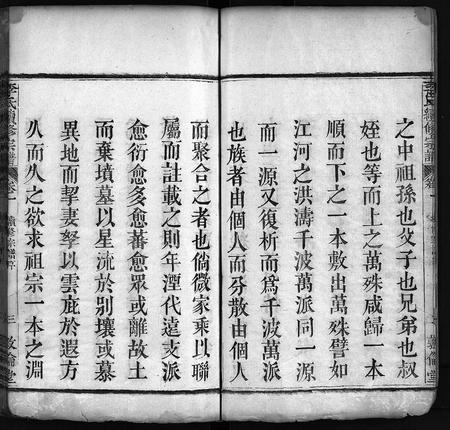 之中祖孫也父子也兄弟也叔
姪也等而上之萬殊咸歸一本
順而下之一本敷出萬殊譬如
江河之洪濤千波萬派同一源
而一源又復析而爲千波萬派
也族者由個人而分散由個人
而聚合之者也倘微家乘以聯
屬而註載之則年湮代遠支派
愈衍愈多愈蕃愈眾或離故土
而棄墳墓以星流於别壤或慕
異地而挈妻孥以雲庇於遐方
久而久之欲求祖宗一本之淵
李氏續修宗譜
卷一
三
敦倫堂